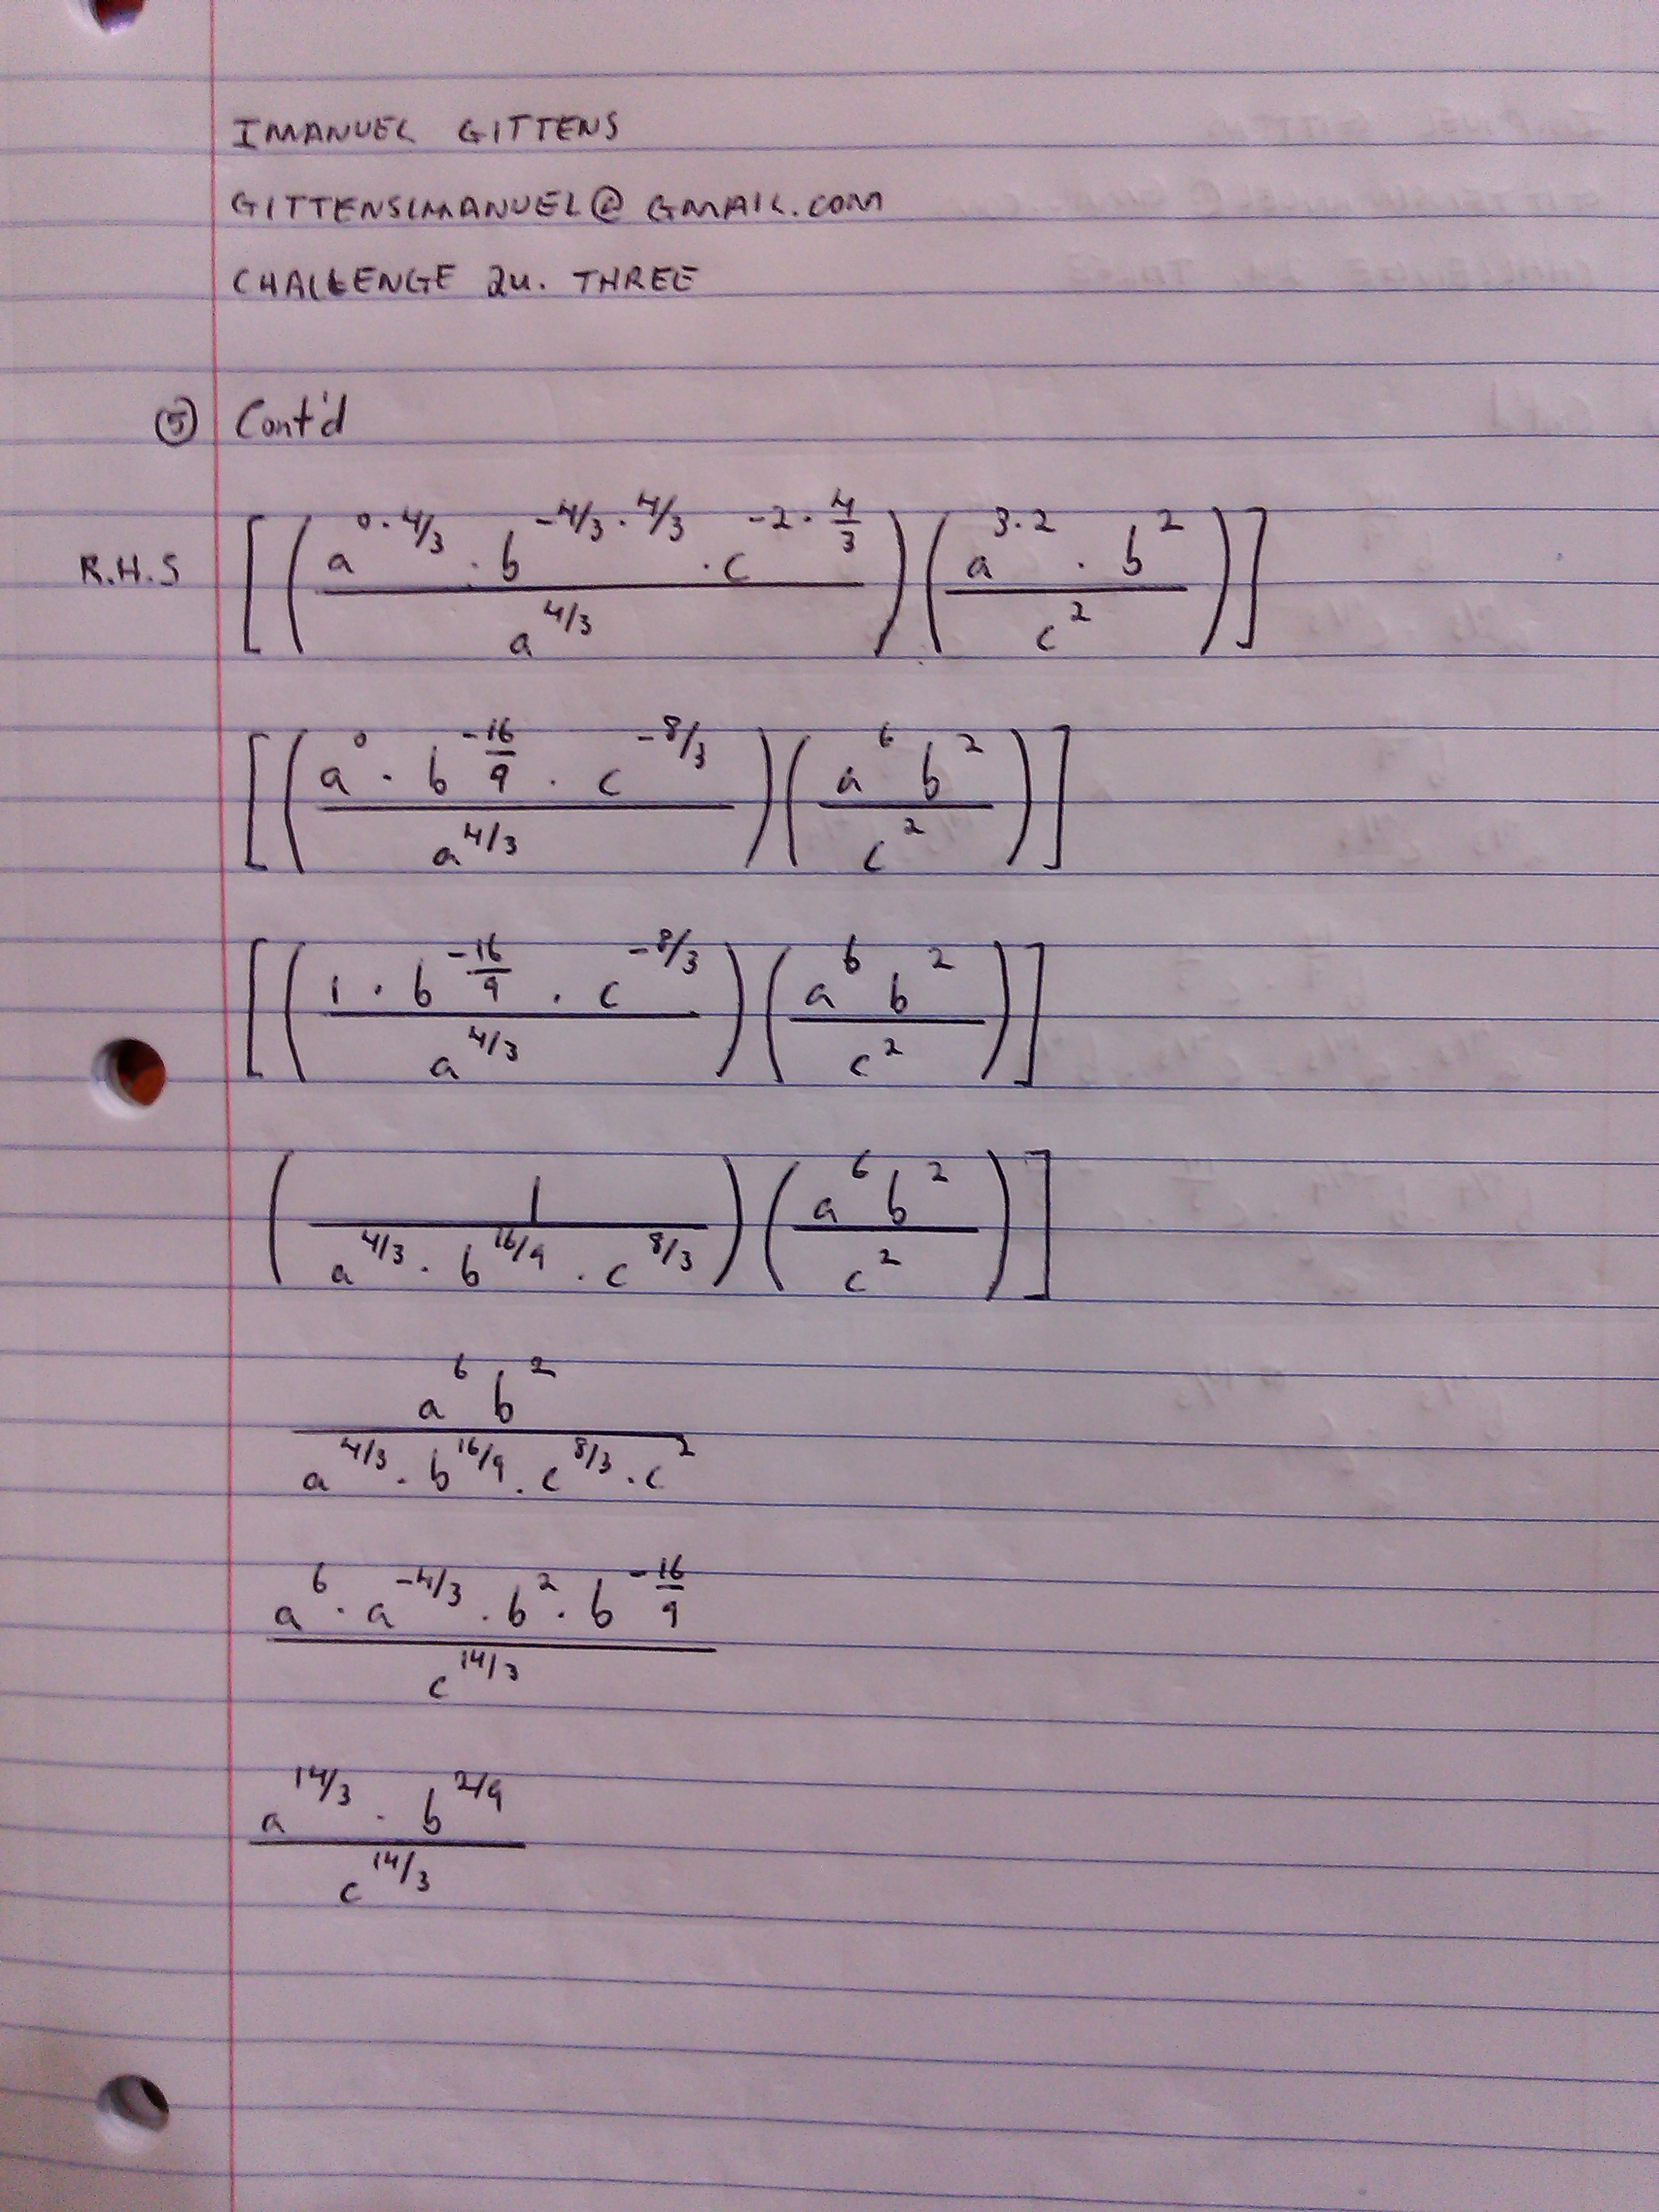 IMANUEL GITTENS
GITTENSIMANUEL@GMAIL.COM
CHALLENGE 2u. THREE
⑤ Cont'd
R.H.S [((a^(0·4/3) · b^(-4/3·4/3) · c^(-2·4/3))/(a^(4/3)))((a^(3·2) · b^2)/(c^2))]
[((a^0 · b^(-16/9) · c^(-8/3))/(a^(4/3)))((a^6 b^2)/(c^2))]
[((1 · b^(-16/9) · c^(-8/3))/(a^(4/3)))((a^6 b^2)/(c^2))]
(1/(a^(4/3) · b^(16/9) · c^(8/3)))((a^6 b^2)/(c^2))]
(a^6 b^2)/(a^(4/3) · b^(16/9) · c^(8/3) · c^2)
(a^6 · a^(-4/3) · b^2 · b^(-16/9))/(c^(14/3))
(a^(14/3) · b^(2/9))/(c^(14/3))